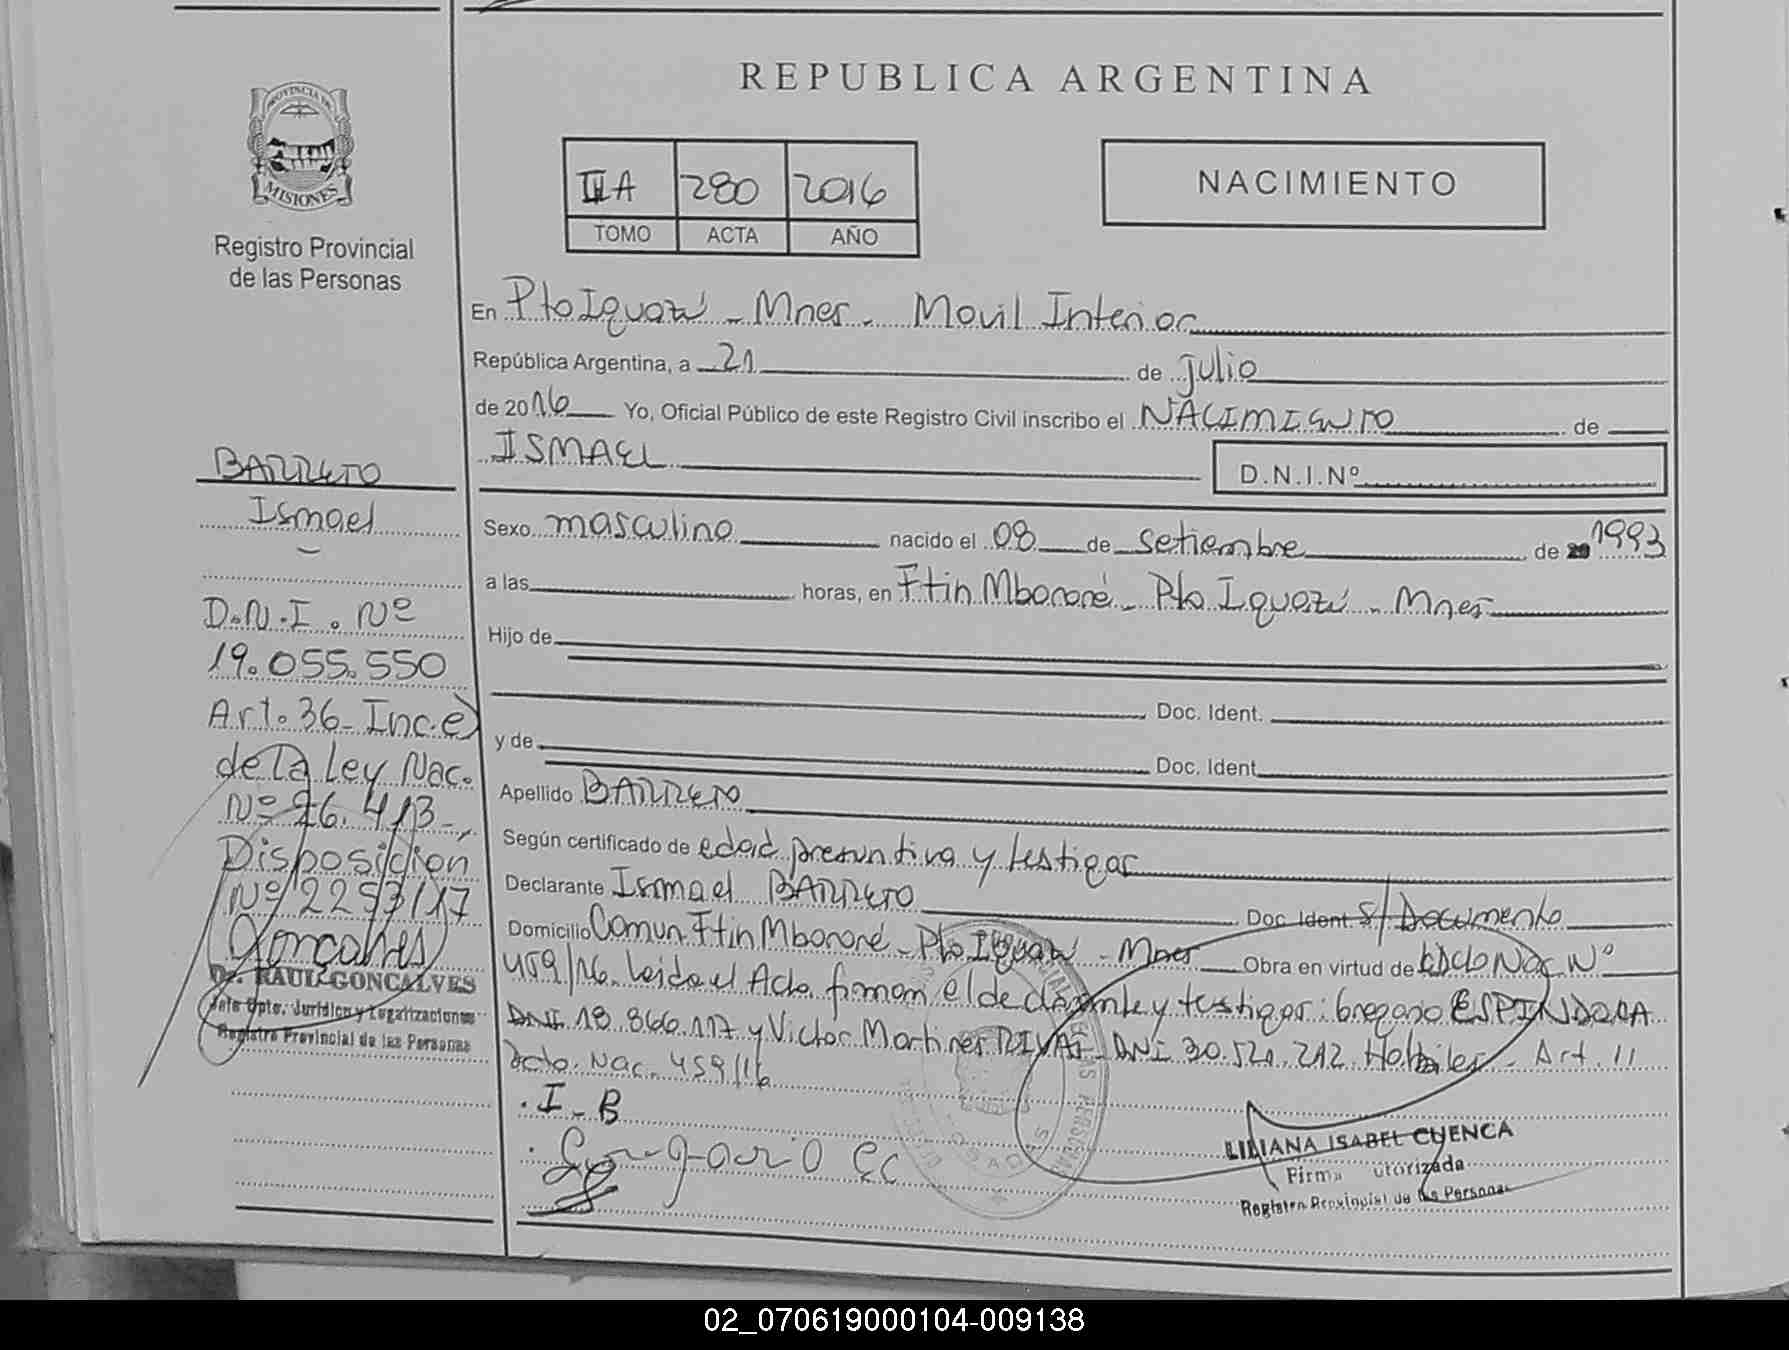 REPUBLICA ARGENTINA
PROVINCIA DE
MISIONES
Registro Provincial
de las Personas
IIA 280 2016
TOMO ACTA AÑO
NACIMIENTO
En Pto Iguazú - Mnes - Movil Interior
República Argentina, a 21 de Julio
de 2016 Yo, Oficial Público de este Registro Civil inscribo el NACIMIENTO de
ISMAEL D.N.I.Nº
Sexo masculino nacido el 08 de setiembre de 1993
a las horas, en Ftin Mbororé - Pto Iguazú - Mnes
Hijo de
Doc. Ident.
y de Doc. Ident.
Apellido BARRETO
Según certificado de edad presuntiva y testigos
Declarante Ismael BARRETO Doc. Ident. S/ Documento
Domicilio Comun. Ftin Mbororé - Pto Iguazú - Mnes Obra en virtud de Dcto Nac Nº
459/16. Leida el Acta firman el declarante y testigos: Gregorio ESPINDOLA
DNI 18.866.117 y Victor Martires RIVAS - DNI 30.521.212. Habiles - Art. 11
Dcto. Nac. 459/16
I - B
Gregorio Ec
LILIANA ISABEL CUENCA
Firma utorizada
Registro Provincial de las Personas
BARRETO
Ismael
D.N.I. Nº
19.055.550
Art. 36 - Inc. e)
de la Ley Nac.
Nº 26.413 -
Disposición
Nº 2253/17
Goncalves
Dr. RAUL GONCALVES
Jefe Dpto. Jurídico y Legalizaciones
Registro Provincial de las Personas
02_070619000104-009138